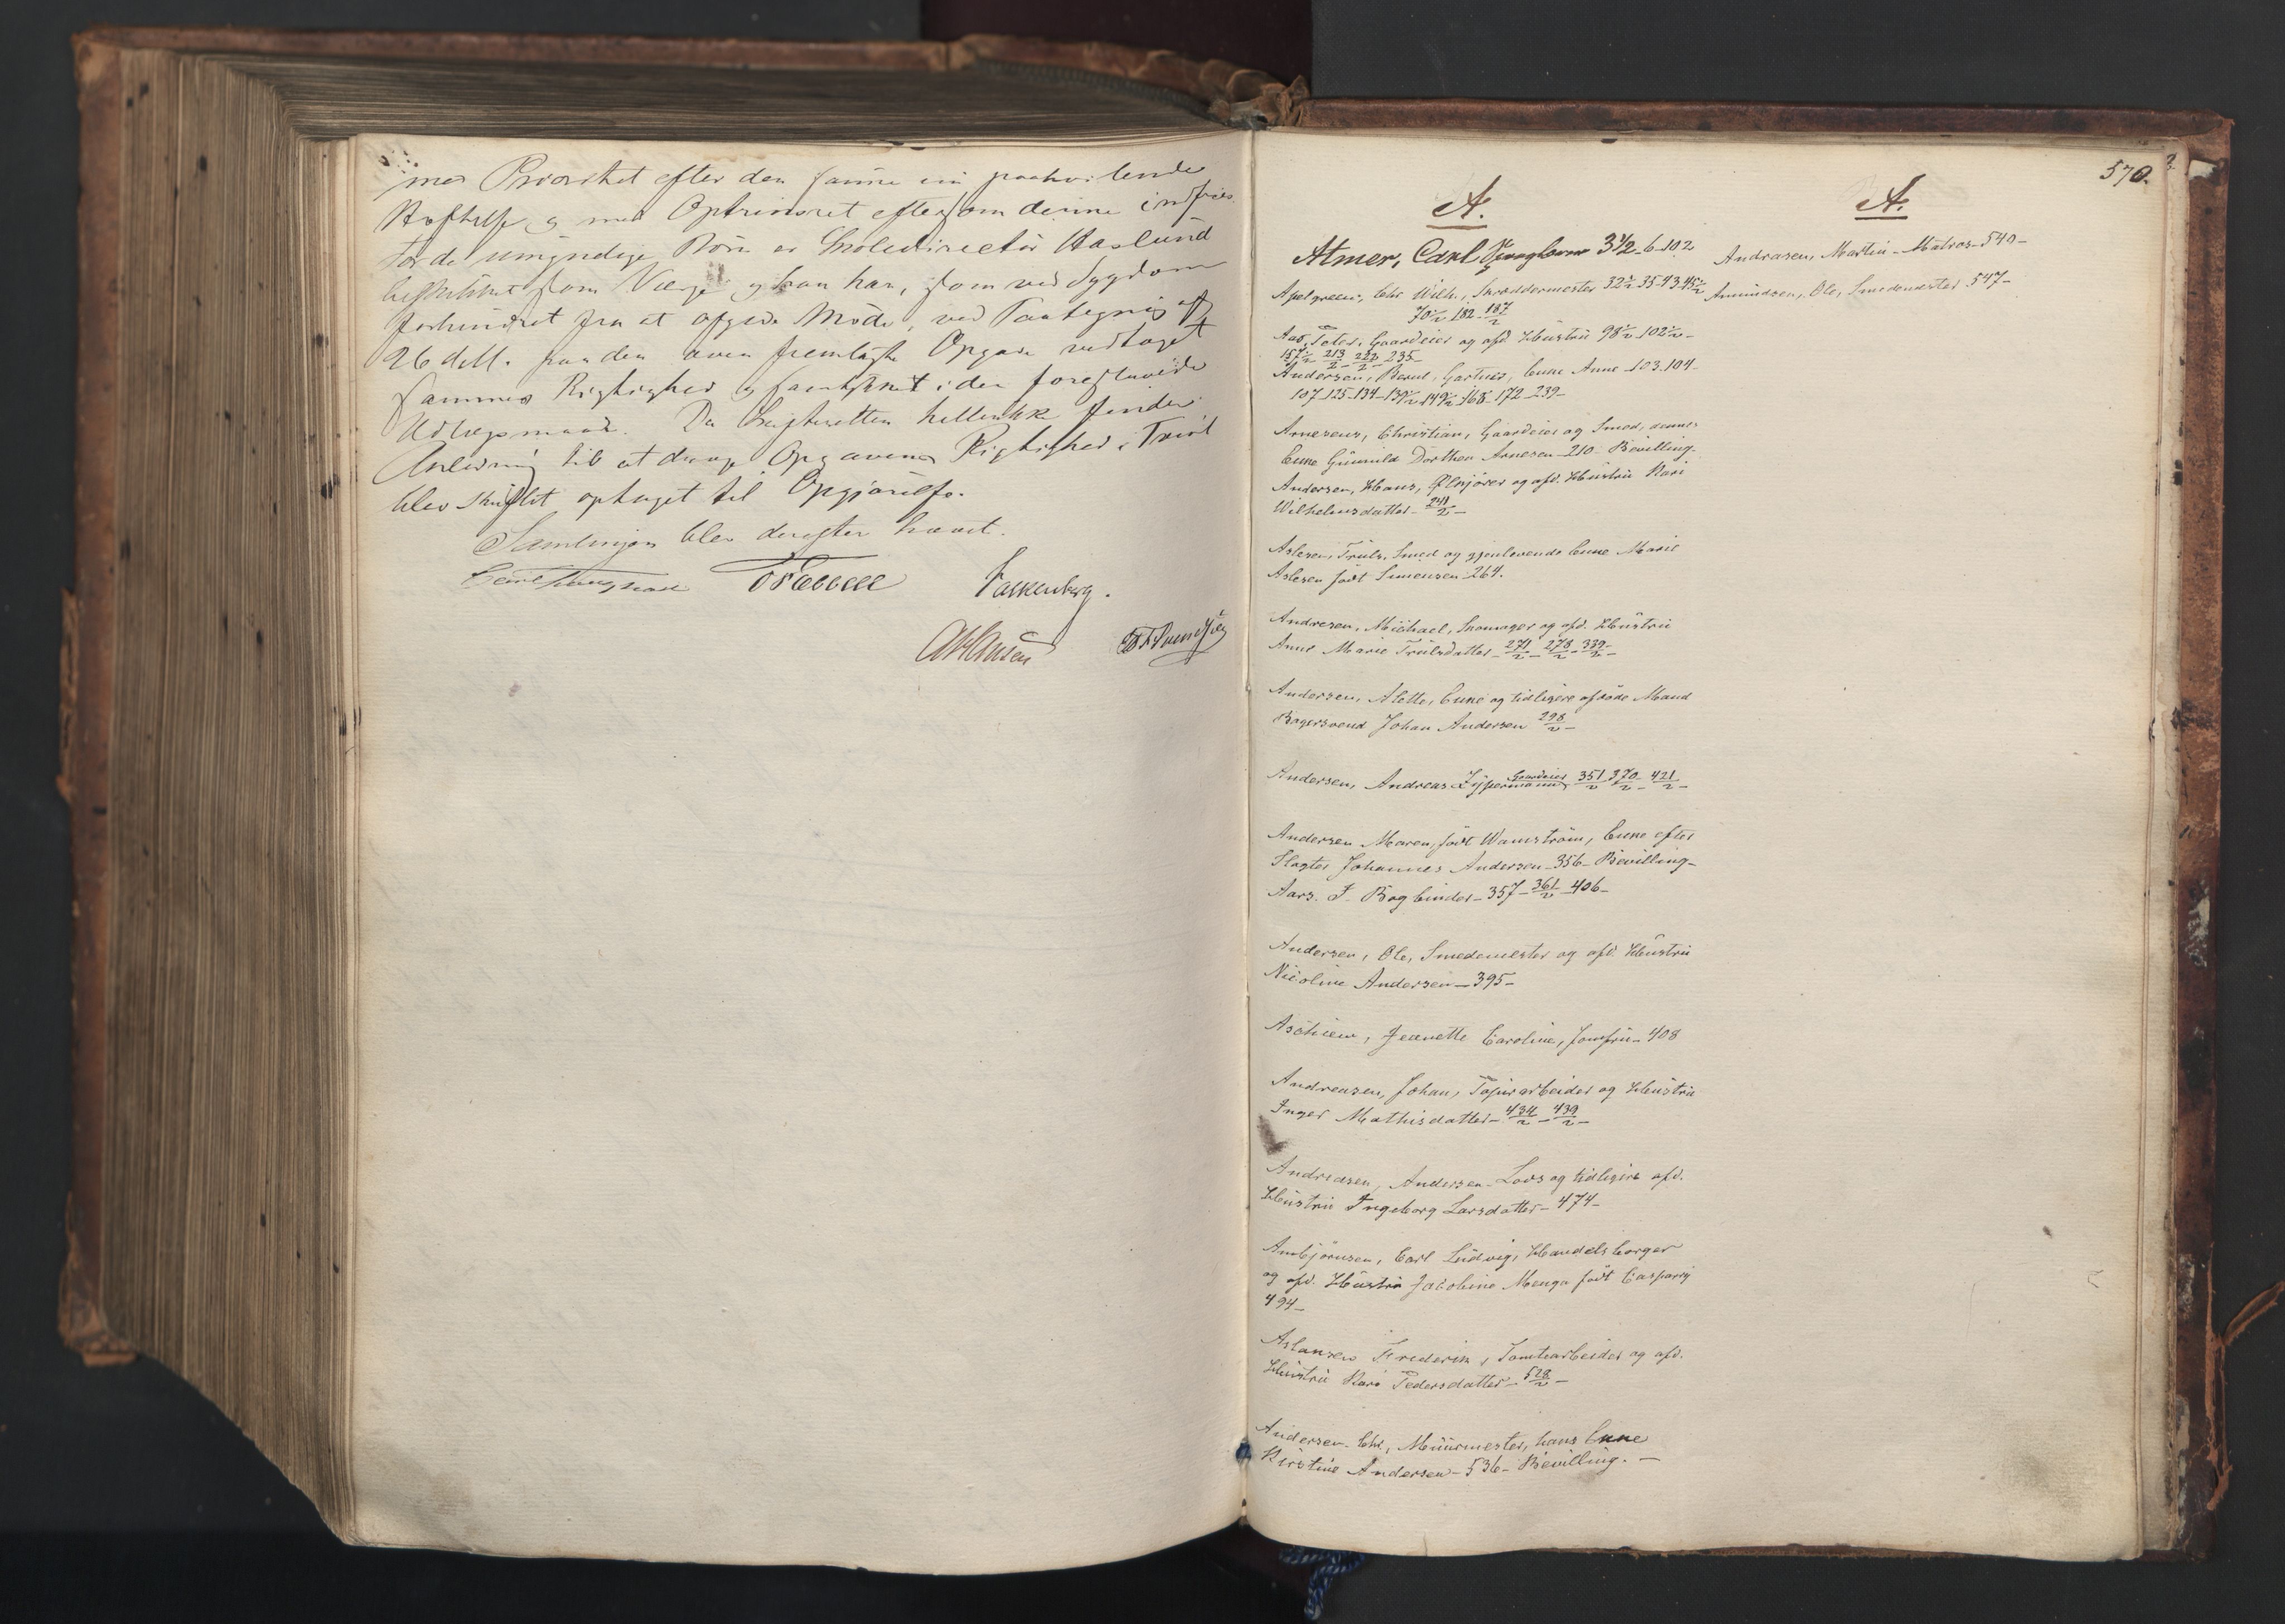 med Prioritet efter den samme nu paahvilende
Heftelse og med Optrinsret eftersom denne indfries.
For de umyndige Børn er Skoledirectör Haslund
beskikket som Værge og han har, som ved Sygdom
forhindret fra at afgive Møde, ved Paategning af
26 ds. paa den oven fremlagte Opgave vedtaget
sammes Rigtighed og samtykket i den foreslaaede
Udlægsmaade. Da Skifteretten heller ikke finder
Anledning til at drage Opgavens Rigtighed i Tvivl
blev Skiftet optaget til Opgjörelse.
Samlingen blev derefter hævet.
Falkenberg.
570.
A.
Atmer, Carl 3½ 6-102
Apelgreen, Chr Wilh., Skræddermester 32½ 35-43-45½
70½ 182 187/2
Aas, Peter, Gaardeier og afd. Hustru 98½ 102½-
157½ 213/2 222/2 235-
Andersen, Bernt, Gartner, Enke Anne 103-104-
107-125-134-139½ 149½ 168-172-239-
Arnesens, Christian, Gaardeier og Smed, dennes
Enke Gunnild Dorthea Arnesen-210-Bevilling-
Andersen, Hans, og afd. Hustru Kari
Wilhelmsdatter-241/2-
Aslesen, Truls, Smed og gjenlevende Enke Marie
Aslesen födt Simensen-264.
Andresen, Michael, Skomager og afd. Hustru
Anne Marie Trulsdatter-271/2-278/2-339/2-
Andersen, Alette, Enke og tidligere afdöde Mand
Bagersvend Johan Andersen 298/2-
Andersen, Andreas Gaardeier 351/2 370/2-421/2-
Andersen Maren, födt Wamström, Enke efter
Slagter Johannes Andersen-356-Bevilling-
Aars. J. Bogbinder-357-361/2-406-
Andersen, Ole, Smedemester og afd. Hustru
Nicoline Andersen-395-
Aschiem, Jeanette Caroline, Jomfru-408
Andreasen, Johan, Papirarbeider og Hustru
Inger Mathisdatter-434/2-439/2-
Andreasen, Andersen-Lods og tidligere afd.
Hustru Ingeborg Larsdatter-474-
Ambjörnsen, Carl Ludvig, Handelsborger
og afd. Hustru Jacobine Menga födt Caspary
494-
Aslansen Frederik, Tomtearbeider og afd.
Hustru Kari Pedersdatter-528/2-
Andersen-Chr, Muurmester, hans Enke
Kirstine Andersen-536-Bevilling.-
A.
Andrasen, Martin-Matros-540-
Amundsen, Ole, Smedemester 547-